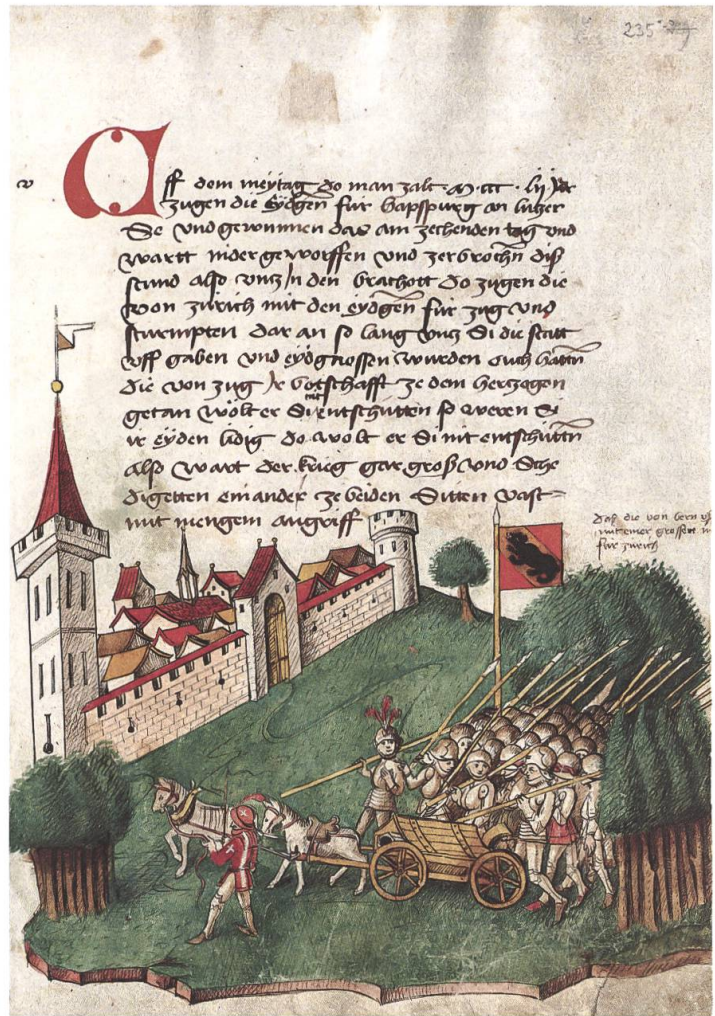 235
Uff dem meytag do man zalt m ccc lij Jar
zugen die Eydgen für hapsspurg an lutzer
Se vnd gewunnen das am zechenden tag vnd
wartt nider geworffen vnd zerbrochn diß
stund also vntz In den brachott do zugen die
von zürich mit den eydgen für zug vnd
sturmpten dar an so lang vntz Si die statt
vff gaben vnd eydgnossen wurden ouch hattn
die von zug Ir botschafft ze dem hertzogen
getan wolt er Si nit entschütten so weren Si
ir eyden ledig do wolt er Si nit entschüttn
also wart der krieg gar groß vnd Sche
digetten ein ander ze beiden Sitten vast
mit mengem angriff
Daß die von bern
mit einer grossen
für zürich